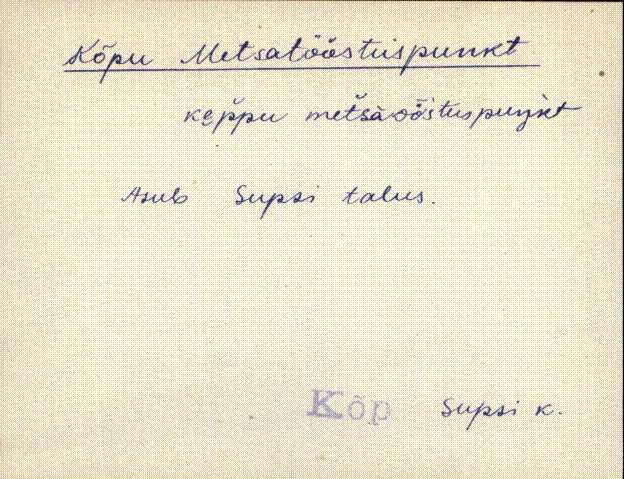 Kõpu Metsatööstuspunkt
kɐp̆pu met̆sàööstuspuŋkt
Asub Supsi talus.
Kõp Supsi k.